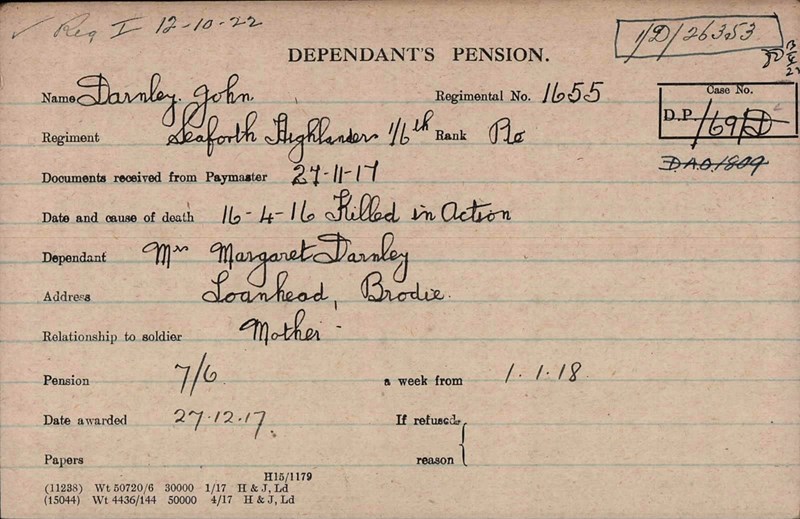 ✓ Reg I 12-10-22
1/D/26353
DEPENDANT'S PENSION.
Name Darnley. John Regimental No. 1655
Case No.
D.P. /169/D
Regiment Seaforth Highlanders 1/6th Rank Pte
D.A.O. 1809
Documents received from Paymaster 27-11-17
Date and cause of death 16-4-16 Killed in Action
Dependant Mrs Margaret Darnley
Address Loanhead, Brodie.
Relationship to soldier Mother -
Pension 7/6 a week from 1.1.18.
Date awarded 27.12.17. If refused,
Papers reason
H15/1179
(11238) Wt 50720/6 30000 1/17 H & J, Ld
(15044) Wt 4436/144 50000 4/17 H & J, Ld